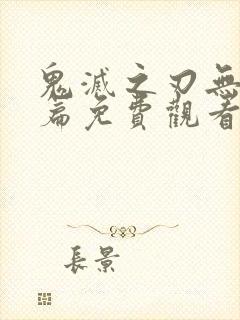 鬼滅之刃無
篇免費觀看
長景